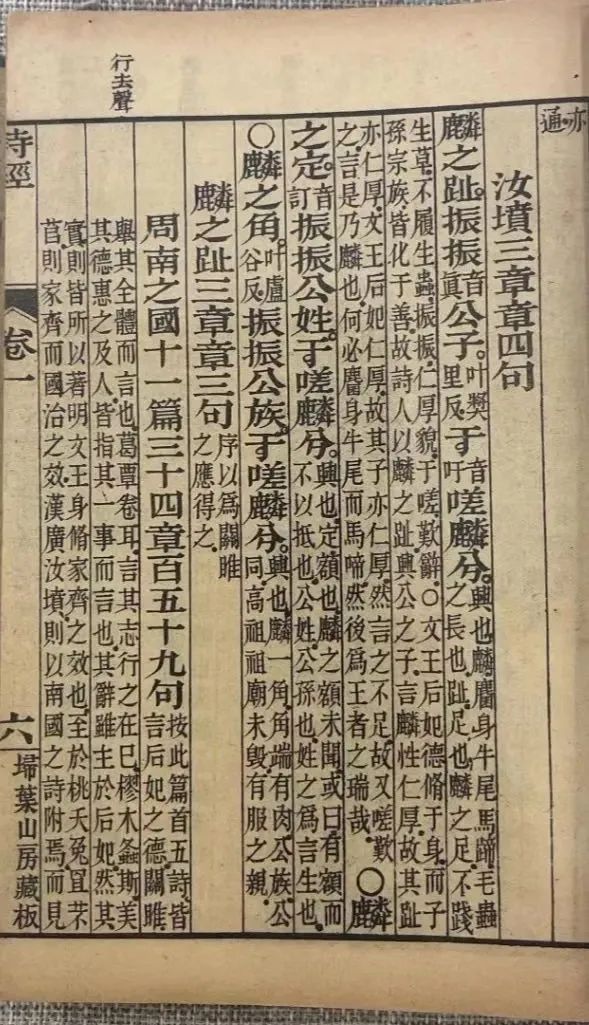 亦通
汝墳三章章四句
麟之趾。振振音眞公子。叶奬里反。于音吁嗟麟兮。興也。麟麕身牛尾馬蹄。毛蟲之長也。趾足也。麟之足不踐
生草。不履生蟲。振振仁厚貌。于嗟歎辭。○文王后妃德脩于身。而子孫宗族皆化于善。故詩人以麟之趾興公之子。言麟性仁厚。故其趾
亦仁厚。文王后妃仁厚。故其子亦仁厚。然言之不足。故又嗟歎之。言是乃麟也。何必麕身牛尾而馬啼。然後爲王者之瑞哉。○麟
之定。音訂振振公姓。于嗟麟兮。興也。定額也。麟之額未聞。或曰有額而不以抵也。公姓公孫也。姓之爲言生也。
○麟之角。叶盧谷反。振振公族。于嗟麟兮。興也。麟一角。角端有肉。公族公同高祖。祖廟未毀。有服之親。
麟之趾三章章三句序以爲關雎之應得之。
周南之國十一篇三十四章百五十九句按此篇首五詩皆言后妃之德。關雎
舉其全體而言也。葛覃卷耳言其志行之在已。樛木螽斯美其德惠之及人。皆指其一事而言也。其辭雖主於后妃。然其
實則皆所以著明文王身脩家齊之效也。至於桃夭兔罝芣苢則家齊而國治之效。漢廣汝墳則以南國之詩附焉。而見
行去聲
詩經 卷一 六 埽葉山房藏板